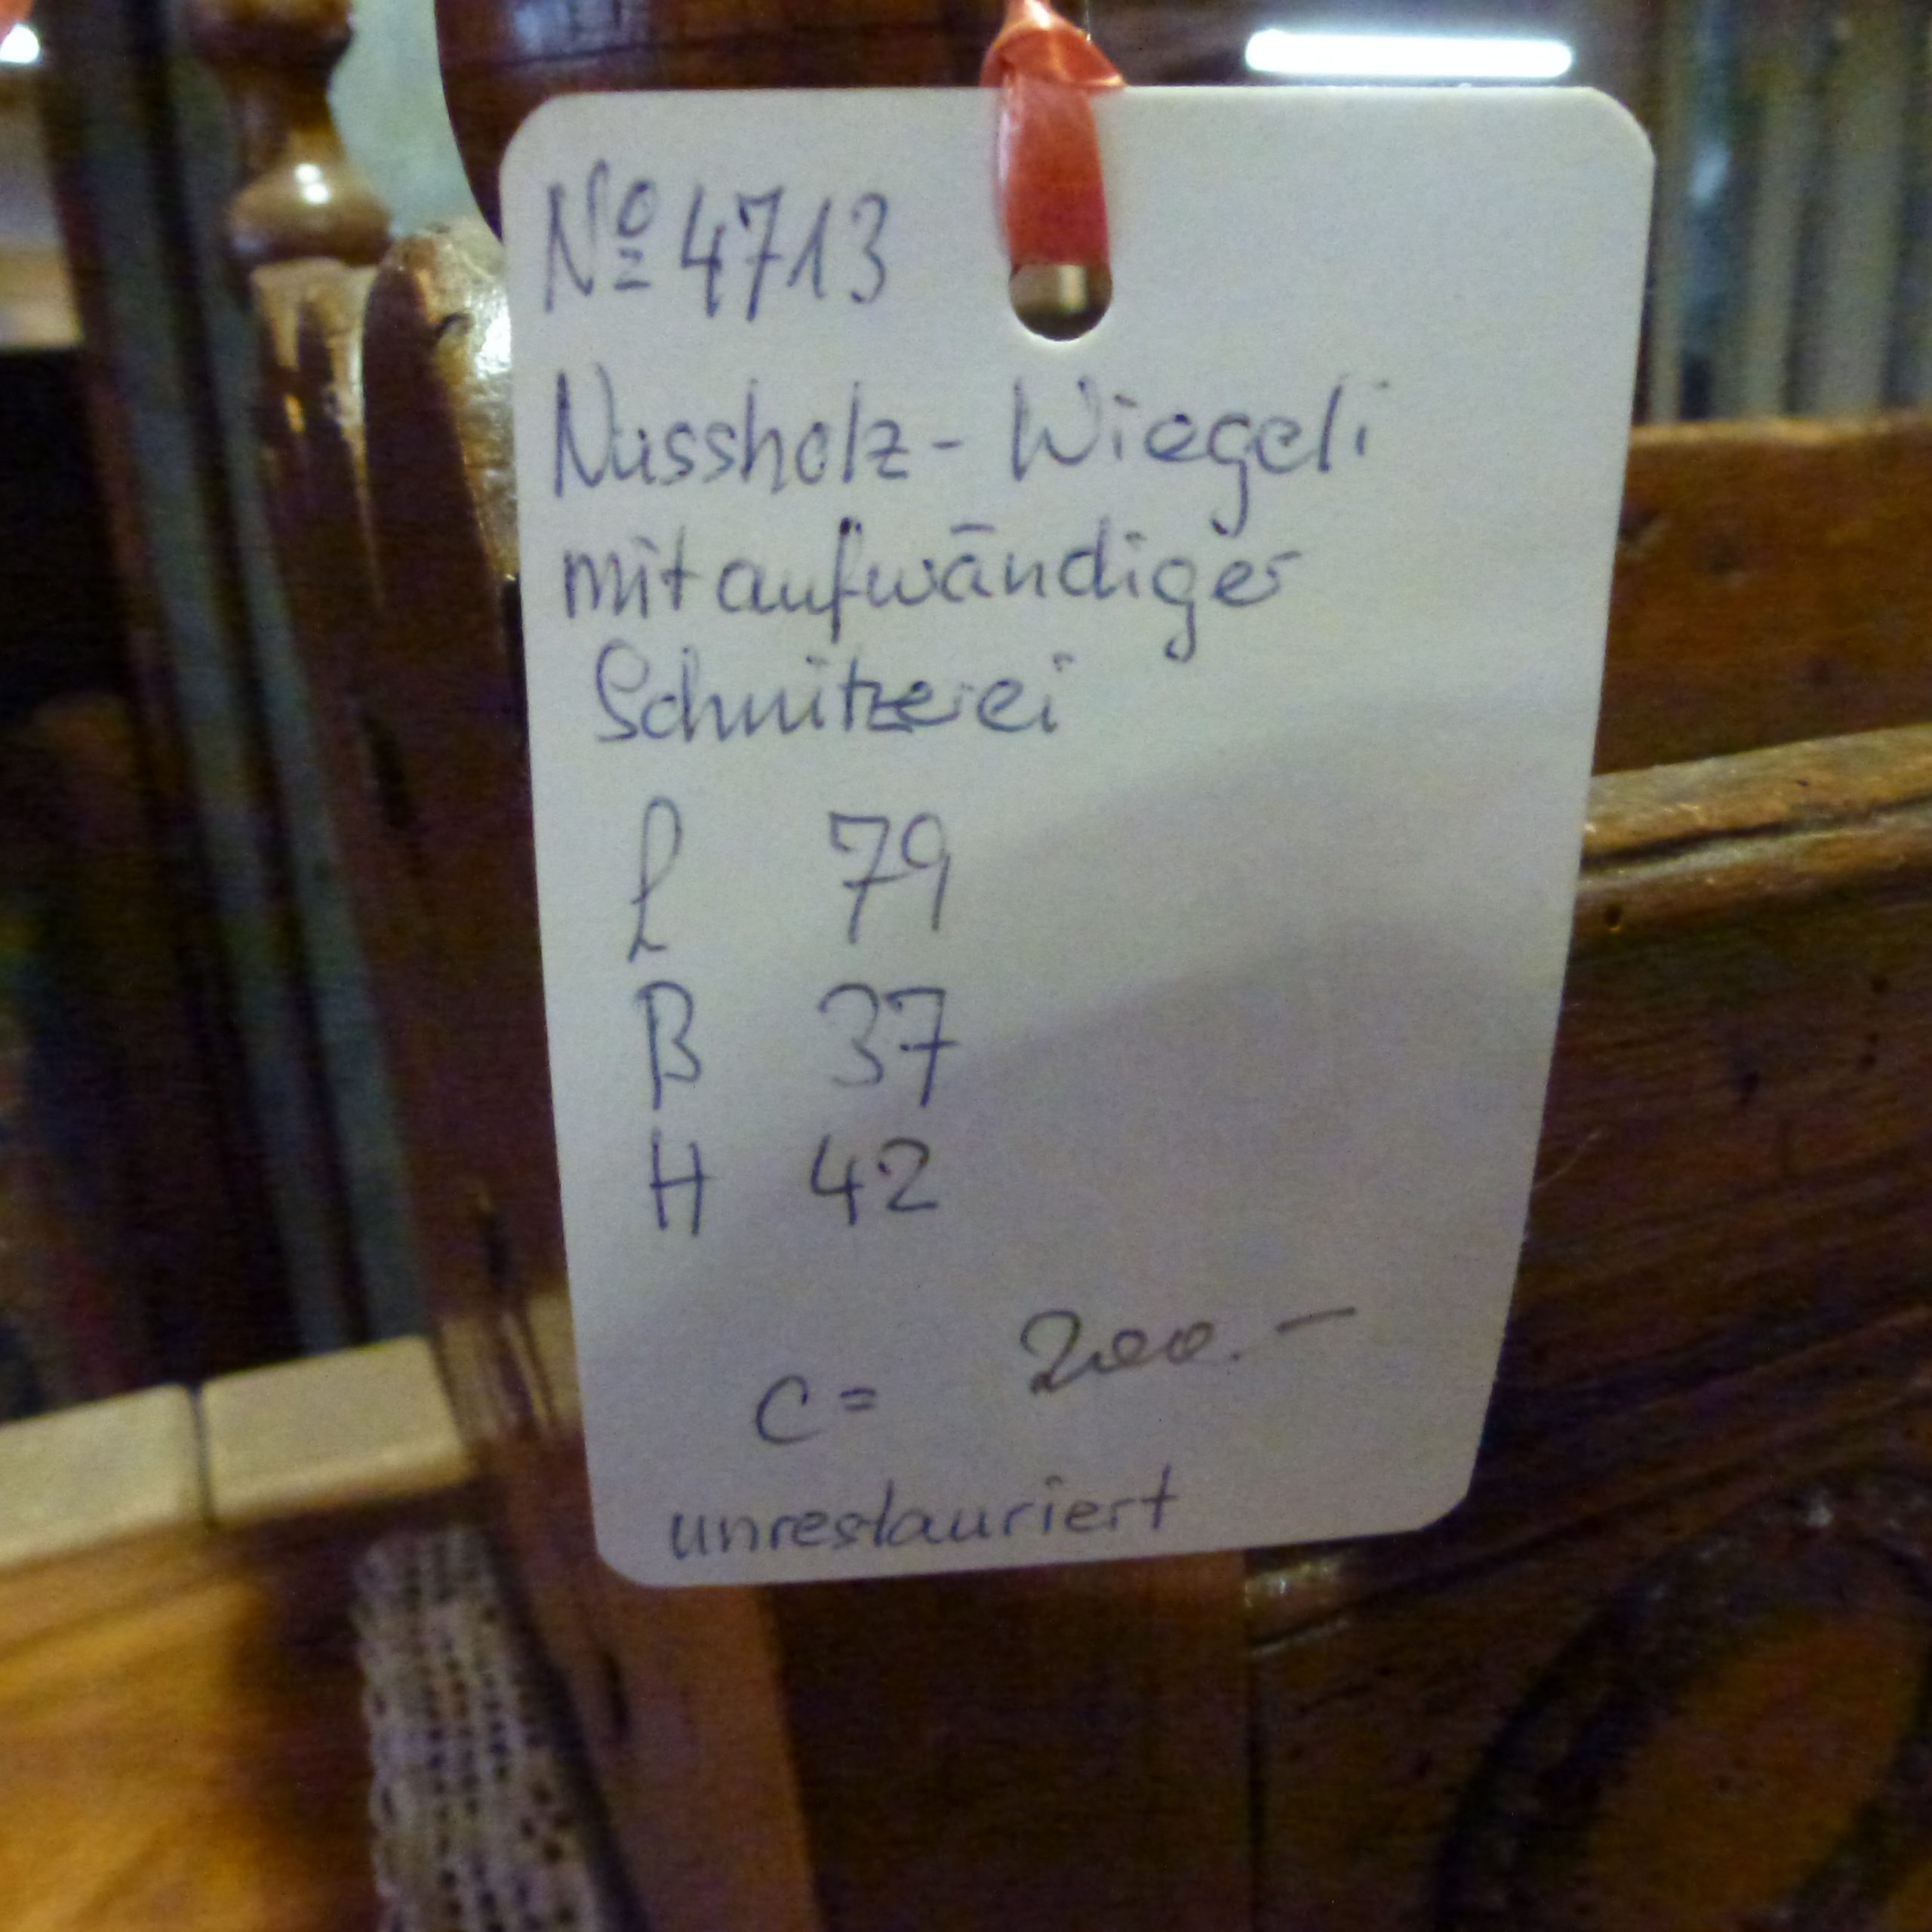 Nº 4713
Nussholz - Wiegeli
mit aufwändiger
Schnitzerei
L 79
B 37
H 42
C = 200.-
unrestauriert